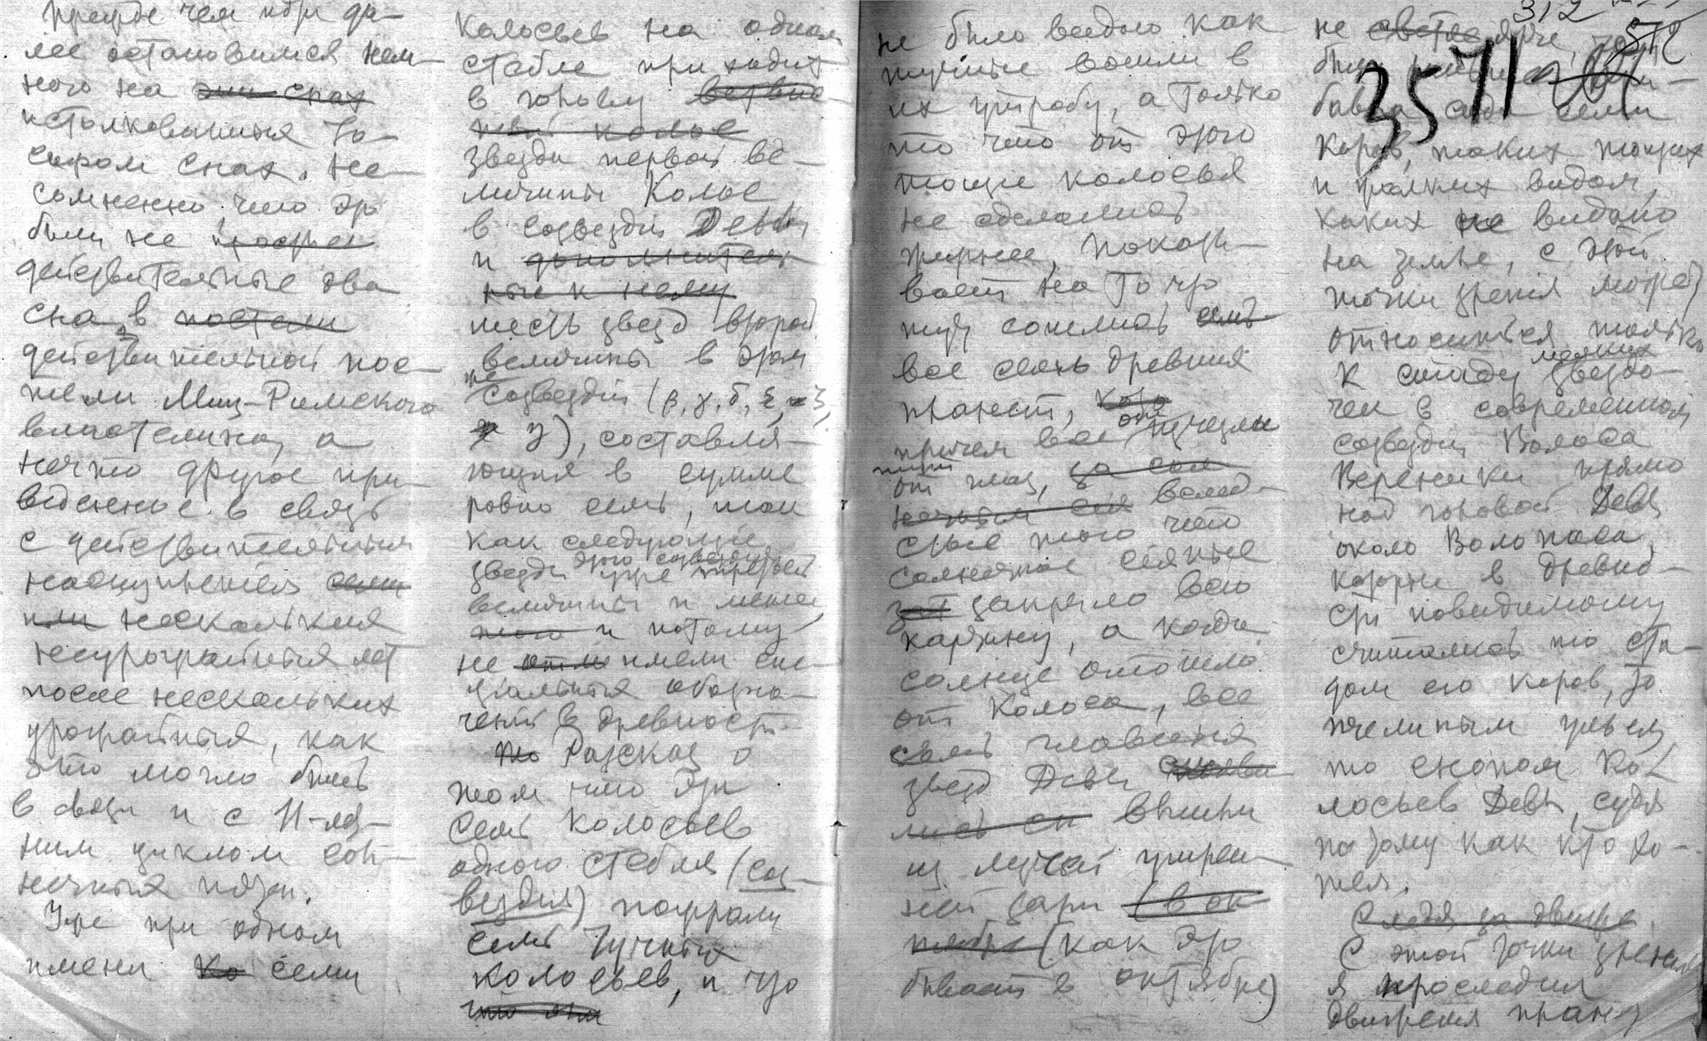 Прежде чем идти да-
лее остановимся нем-
ного на эти снах
истолкованныя Іо-
сифом снах. Не-
сомненно, что это
были не простые
действительные два
сна в постели
действительной пос-
тели Миц-Римского
властелина, а
нечто другое при-
веденное в связь
с действительным
наступлением семи
или нескольких
неурожайных лет
после нескольких
урожайных, как
это могло быть
в связи и с 11-лет-
ним циклом сол-
нечных пятен.
Уже при одном
имени ко семи
колосьев на одном
стебле приходит
в голову
колос
звезда первой ве-
личины Колос
в созвездии Девы
и дополнитель-
ные к нему
шесть звезд второй
величины в этом
же созвездии (β, γ, δ, ε, ζ,
η), составля-
ющия в сумме
ровно семь, так
как следующие
звезды этого созвездия уже третьей
величины и менее,
и потому
не имели спе-
циальных обозна-
чений в древности.
Рассказ о
том что эти
семь колосьев
одного стебля (соз-
вездия) пожрали
семь тучных
колосьев, и что
что эти
не было видно как
тучные вошли в
их утробу, а только
то что от этого
тощие колосья
не сделались
жирнее, показы-
вает на то что
тут сошлись семь
все семь древних
планет,
причем все они исчезли
от глаз, за сол-
вслед-
ствие того что
солнечное сияние
закрыло всю
картину, а когда
солнце отошло
от Колоса, все
семь главных
звезд Девы
вышли
из лучей утрен-
ней зари (в ок-
тябре (как это
бывает в октябре)
312
3571
572
не светло ярче,
семи
коров, таких тощих
и плохих видом,
каких не видано
на земле, с этой
точки зрения может
относиться только
к стаду мелких звездо-
чек в современном
созвездии Волоса
Вереники прямо
над головой Девы
около Волопаса,
которые в древно-
сти повидимому
считались то ста-
дом его коров, то
пчелиным ульем,
то снопом Ко-
лосьев Девы, судя
по тому как кто хо-
тел.
Следя за движе
С этой точки зрения
я проследил
движения план